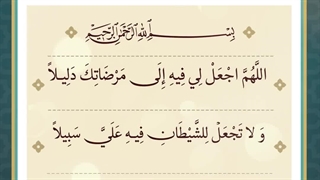 بِسْمِ اللَّهِ الرَّحْمَٰنِ الرَّحِيمِ
اللَّهُمَّ اجْعَلْ لِي فِيهِ إِلَى مَرْضَاتِكَ دَلِيلاً
وَ لا تَجْعَلْ لِلشَّيْطَانِ فِيهِ عَلَيَّ سَبِيلاً